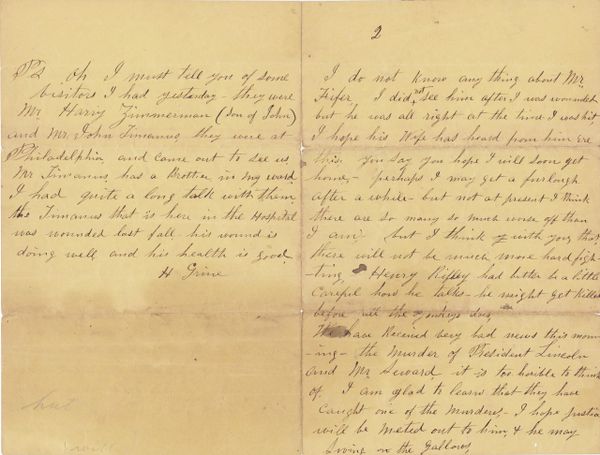 PS Oh I must tell you of some
visitors I had yestarday - they were
Mr Harry Zimmerman (son of John)
and Mr John Timanus, they were at
Philadelphia and came out to see us,
Mr Timanus has a Brother in my ward
I had quite a long talk with them
the Timanus that is here in the Hospital
was wounded last fall his wound is
doing well and his health is good.
H Grine
2
I do not know any thing about Mr
Fifer, I did not see him after I was wounded
but he was all right at the time I was hit
I hope his Wife has heard from him ere
this. you say you hope I will soon get
home, - perhaps I may get a furlough
after a while - but not at present I think
there are so many so much worse off than
I am, but I think with you that
there will not be much more hard figh-
-ting, Henry had better be a little
careful how he talks - he might get killed
before all the
We have received very bad news this morn-
-ing - the Murder of President Lincoln
and Mr Seward, it is too horible to think
of, I am glad to learn that they have
caught one of the murderes, - I hope justice
will be meted out to him, & he may
swing on the gallows,